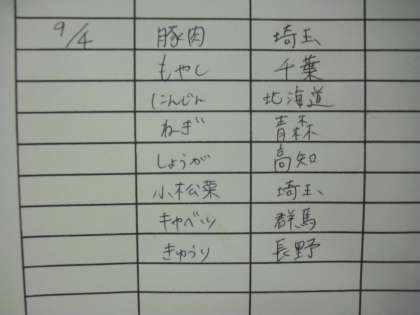 9/4 豚肉 埼玉
もやし 千葉
にんじん 北海道
ねぎ 青森
しょうが 高知
小松菜 埼玉
キャベツ 群馬
きゅうり 長野